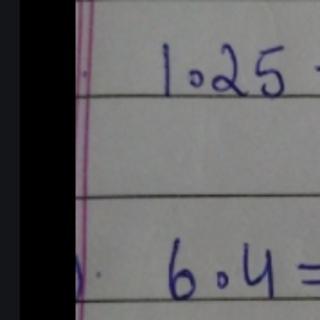 1.25
). 6.4 =